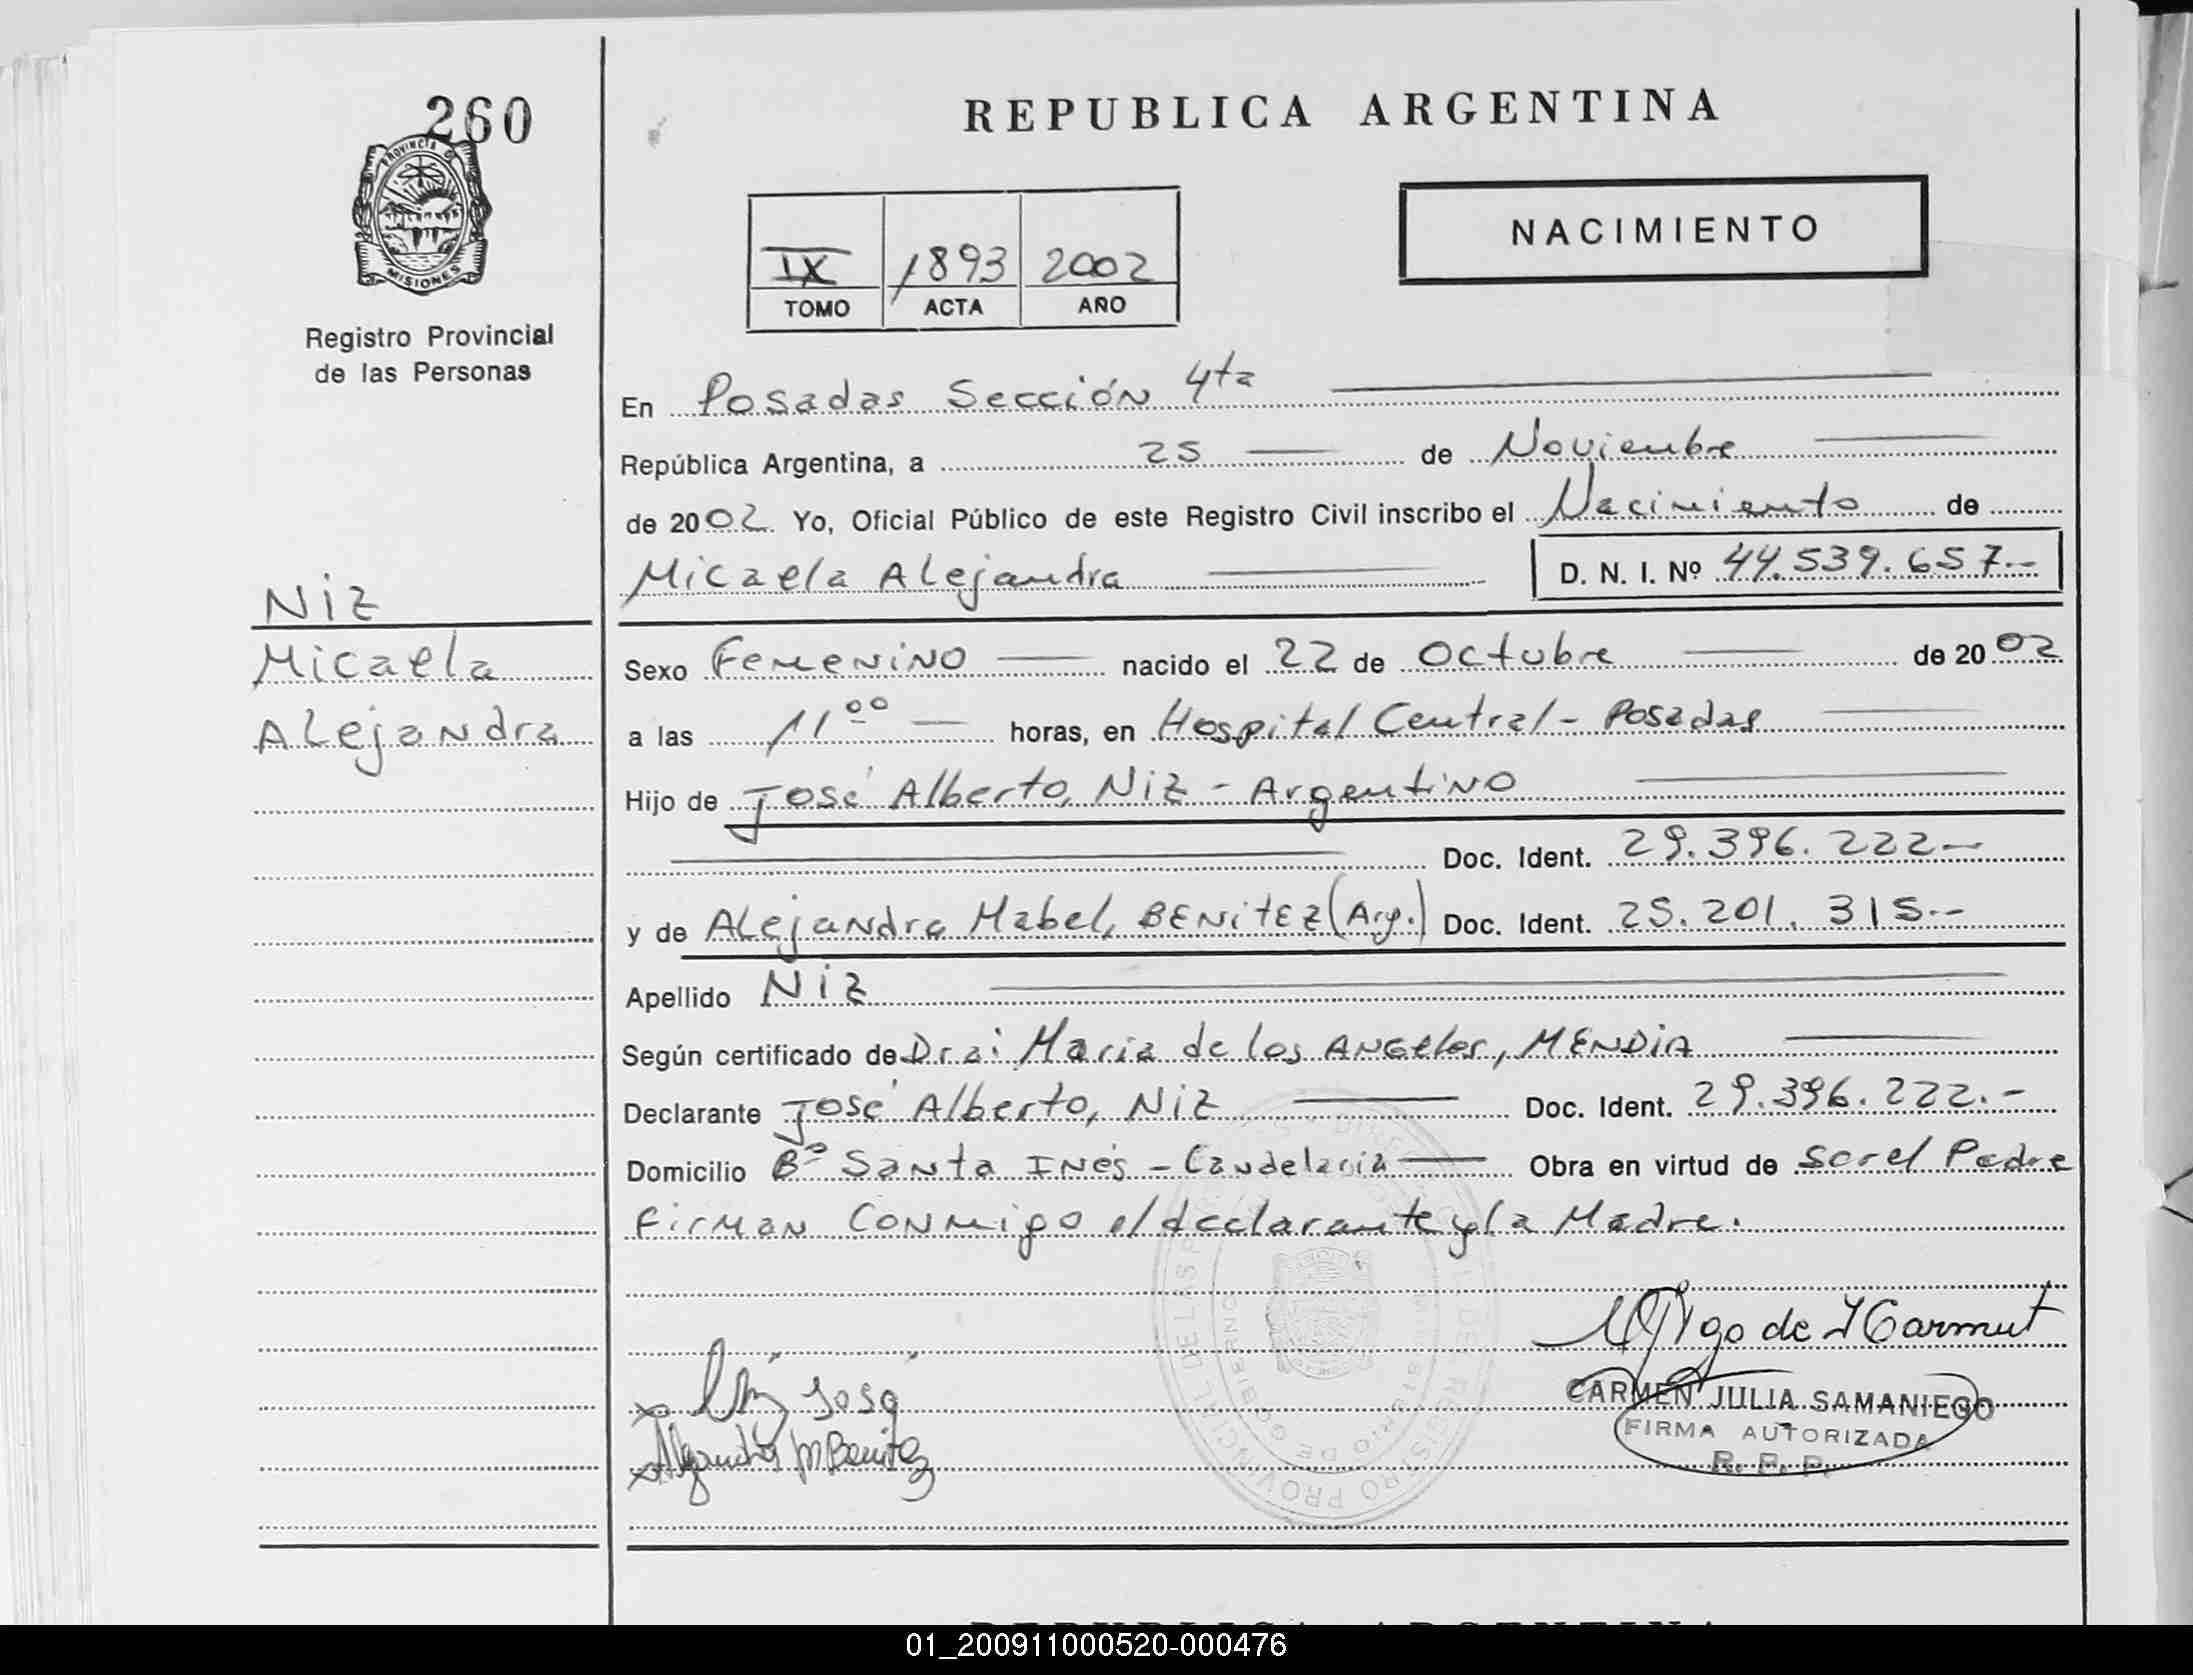 260
PROVINCIA DE
MISIONES
Registro Provincial
de las Personas
REPUBLICA ARGENTINA
NACIMIENTO
IX 1893 2002
TOMO ACTA AÑO
En Posadas Sección 4ta
República Argentina, a 25 de Noviembre
de 2002. Yo, Oficial Público de este Registro Civil inscribo el Nacimiento de
Micaela Alejandra D. N. I. Nº 44.539.657.-
Niz
Micaela
Alejandra
Sexo Femenino nacido el 22 de Octubre de 2002
a las 11 00 horas, en Hospital Central - Posadas
Hijo de José Alberto, Niz - Argentino
Doc. Ident. 29.396.222-
y de Alejandra Mabel, BENITEZ (Arg.) Doc. Ident. 25.201.315.-
Apellido Niz
Según certificado de Dra: Maria de los Angeles, MENDIA
Declarante José Alberto, Niz Doc. Ident. 29.396.222.-
Domicilio Bº Santa Inés - Candelaria Obra en virtud de ser el Padre
Firman conmigo el declarante y la Madre.
Niz José
Alejandra M Benitez
CARMEN JULIA SAMANIEGO
FIRMA AUTORIZADA
R. P. P.
REGISTRO PROVINCIAL DE LAS
MINISTERIO DE GOBIERNO
REPUBLICA ARGENTINA
01_200911000520-000476